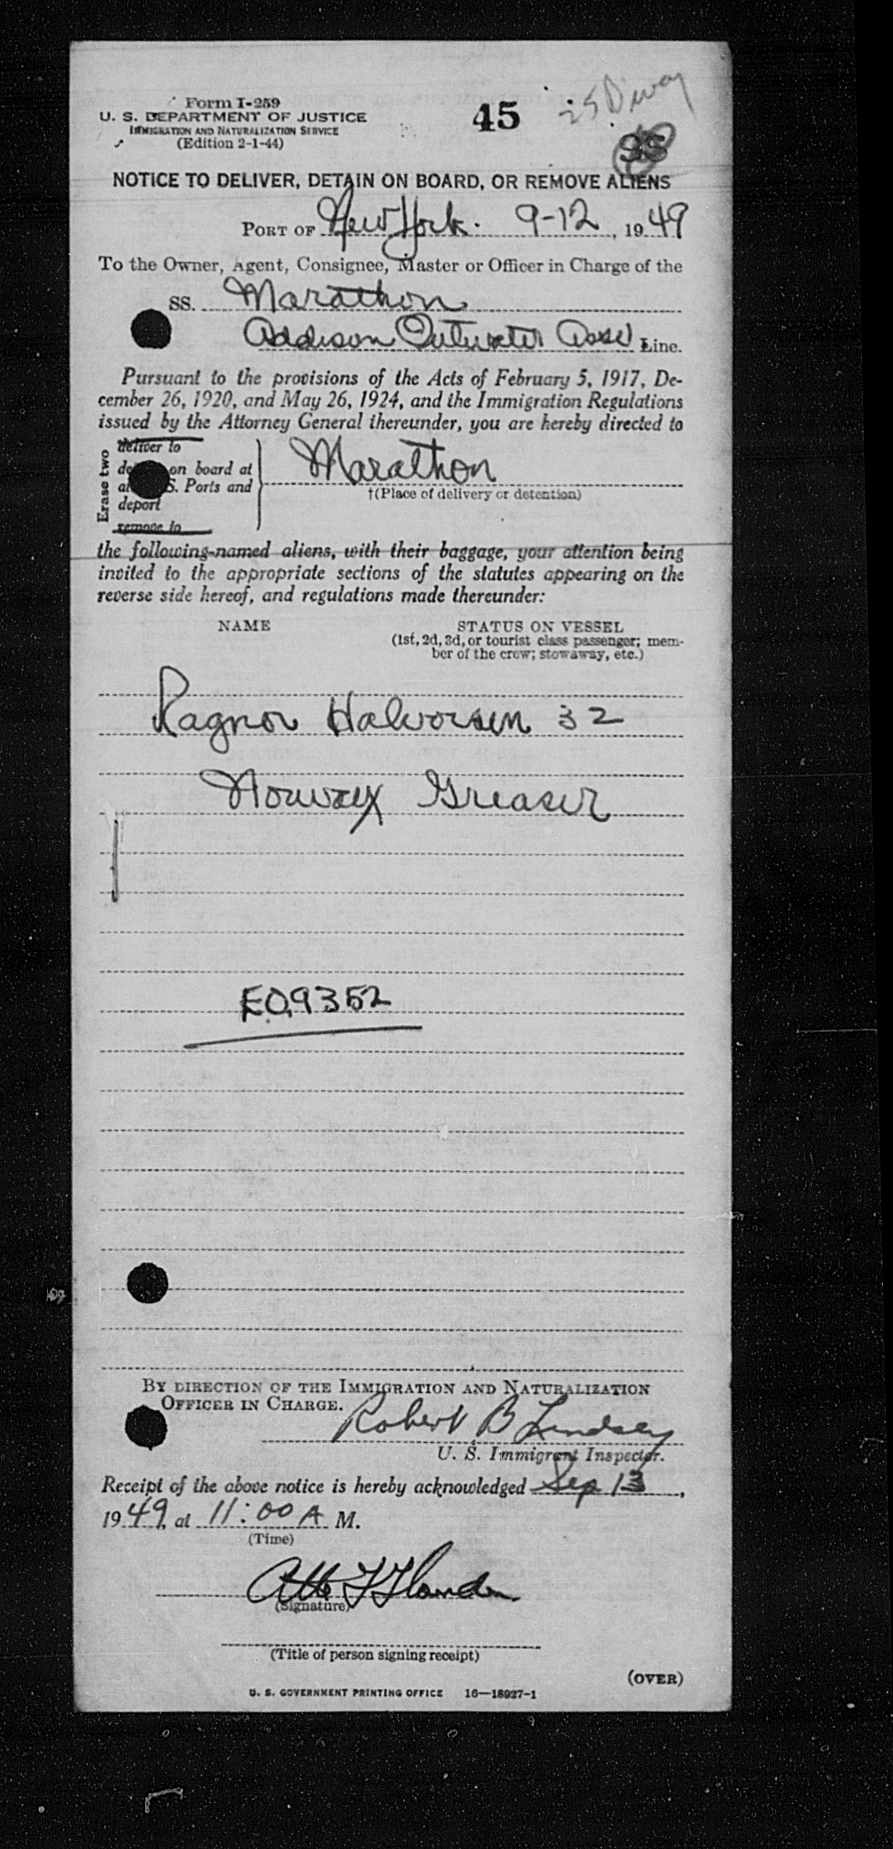 Form I-259
U. S. DEPARTMENT OF JUSTICE
IMMIGRATION AND NATURALIZATION SERVICE
(Edition 2-1-44)
45
25 Bway
NOTICE TO DELIVER, DETAIN ON BOARD, OR REMOVE ALIENS
PORT OF New York. 9-12, 1949
To the Owner, Agent, Consignee, Master or Officer in Charge of the
SS. Marathon
Addison Line.
Pursuant to the provisions of the Acts of February 5, 1917, De-
cember 26, 1920, and May 26, 1924, and the Immigration Regulations
issued by the Attorney General thereunder, you are hereby directed to
Erase two
deliver to
on board at
S. Ports and
deport
remove to
Marathon
†(Place of delivery or detention)
the following-named aliens, with their baggage, your attention being
invited to the appropriate sections of the statutes appearing on the
reverse side hereof, and regulations made thereunder:
NAME STATUS ON VESSEL
(1st, 2d, 3d, or tourist class passenger; mem-
ber of the crew; stowaway, etc.)
Ragnor Halvorsen 32
Norway Greaser
E.O.9352
BY DIRECTION OF THE IMMIGRATION AND NATURALIZATION
OFFICER IN CHARGE.
Robert B Lindsey
U. S. Immigrant Inspector.
Receipt of the above notice is hereby acknowledged Sep 13,
1949, at 11:00 A M.
(Time)
(Signature)
(Title of person signing receipt)
(OVER)
U. S. GOVERNMENT PRINTING OFFICE 16—18927-1